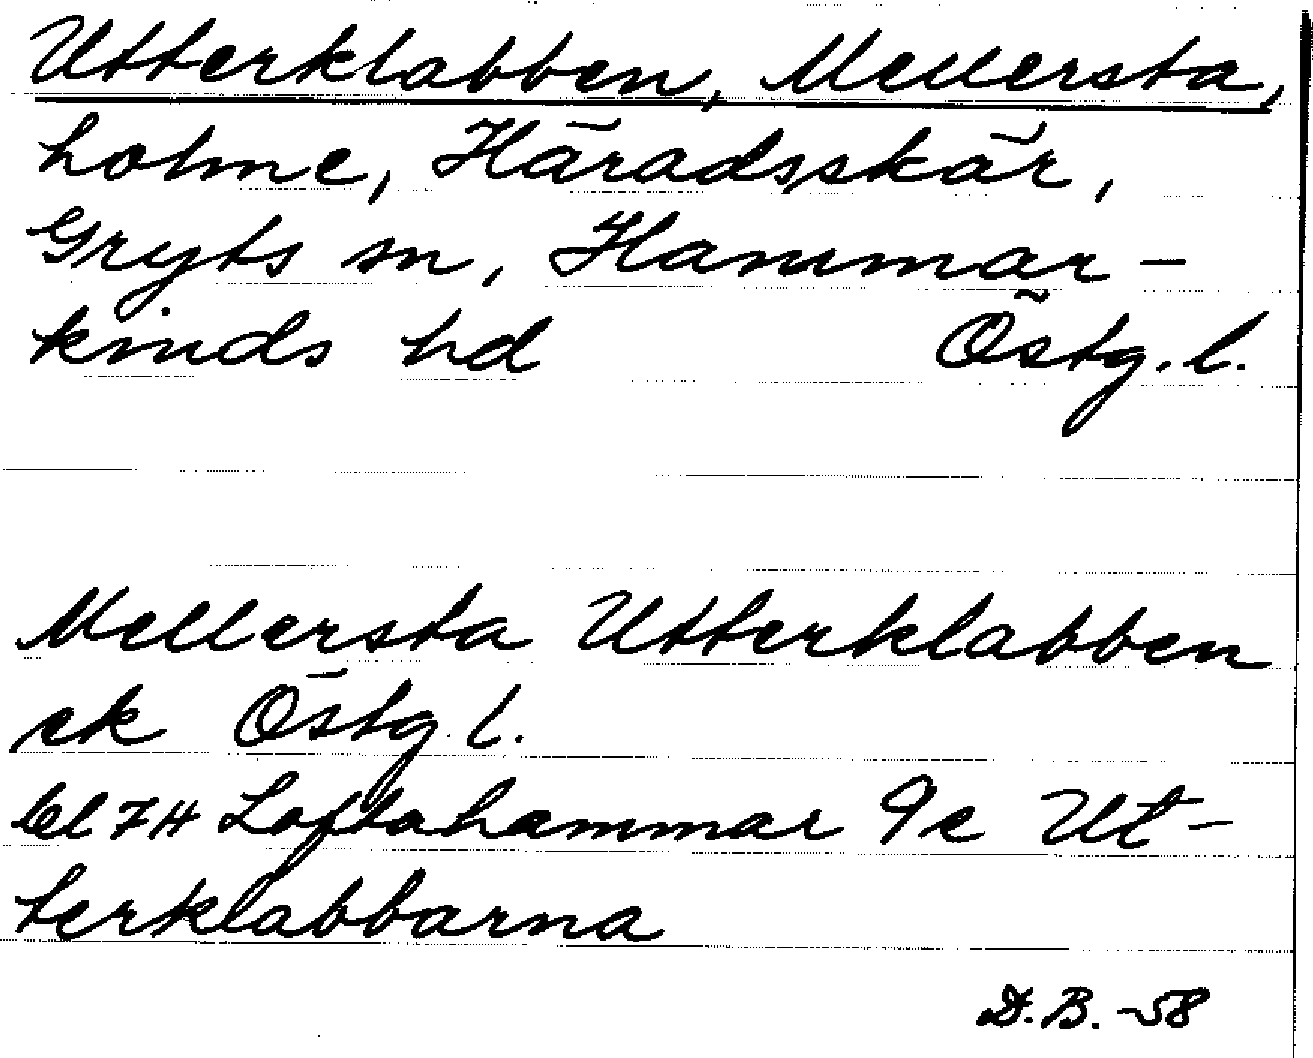 Utterklabben, Mellersta,
holme, Häradsskär,
Gryts sn, Hammar-
kinds hd Östg. l.
Mellersta Utterklabben
ek Östg. l.
bl 7H Loftahammar 9e Ut-
terklabbarna
D.B. -58